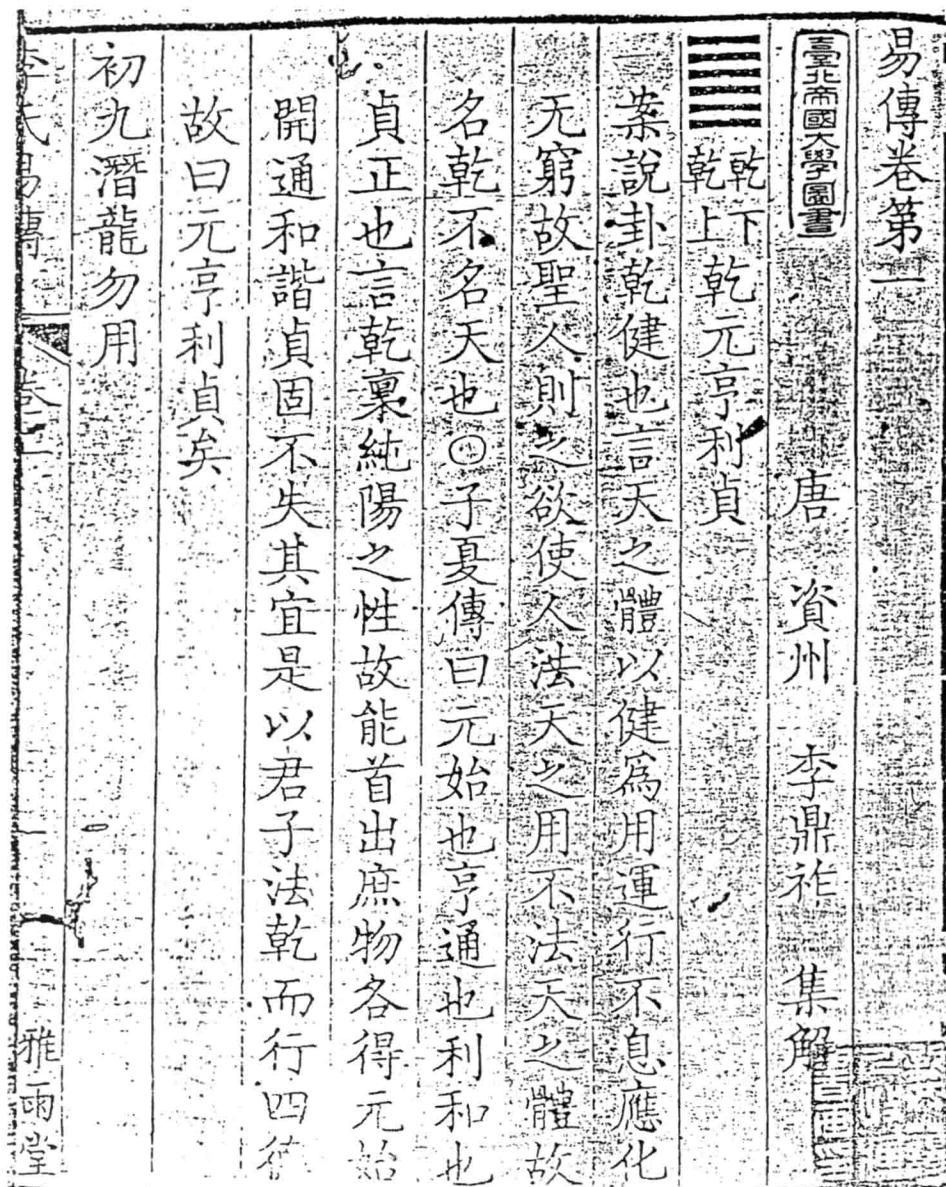 易傳卷第一
臺北帝國大學圖書
唐 資州 李鼎祚 集解
乾下
乾上
乾元亨利貞
案說卦乾健也言天之體以健為用運行不息應化
无窮故聖人則之欲使人法天之用不法天之體故
名乾不名天也〇子夏傳曰元始也亨通也利和也
貞正也言乾稟純陽之性故能首出庶物各得元始
開通和諧貞固不失其宜是以君子法乾而行四德
故曰元亨利貞矣
初九潛龍勿用
李氏易傳
卷一
一
雅雨堂